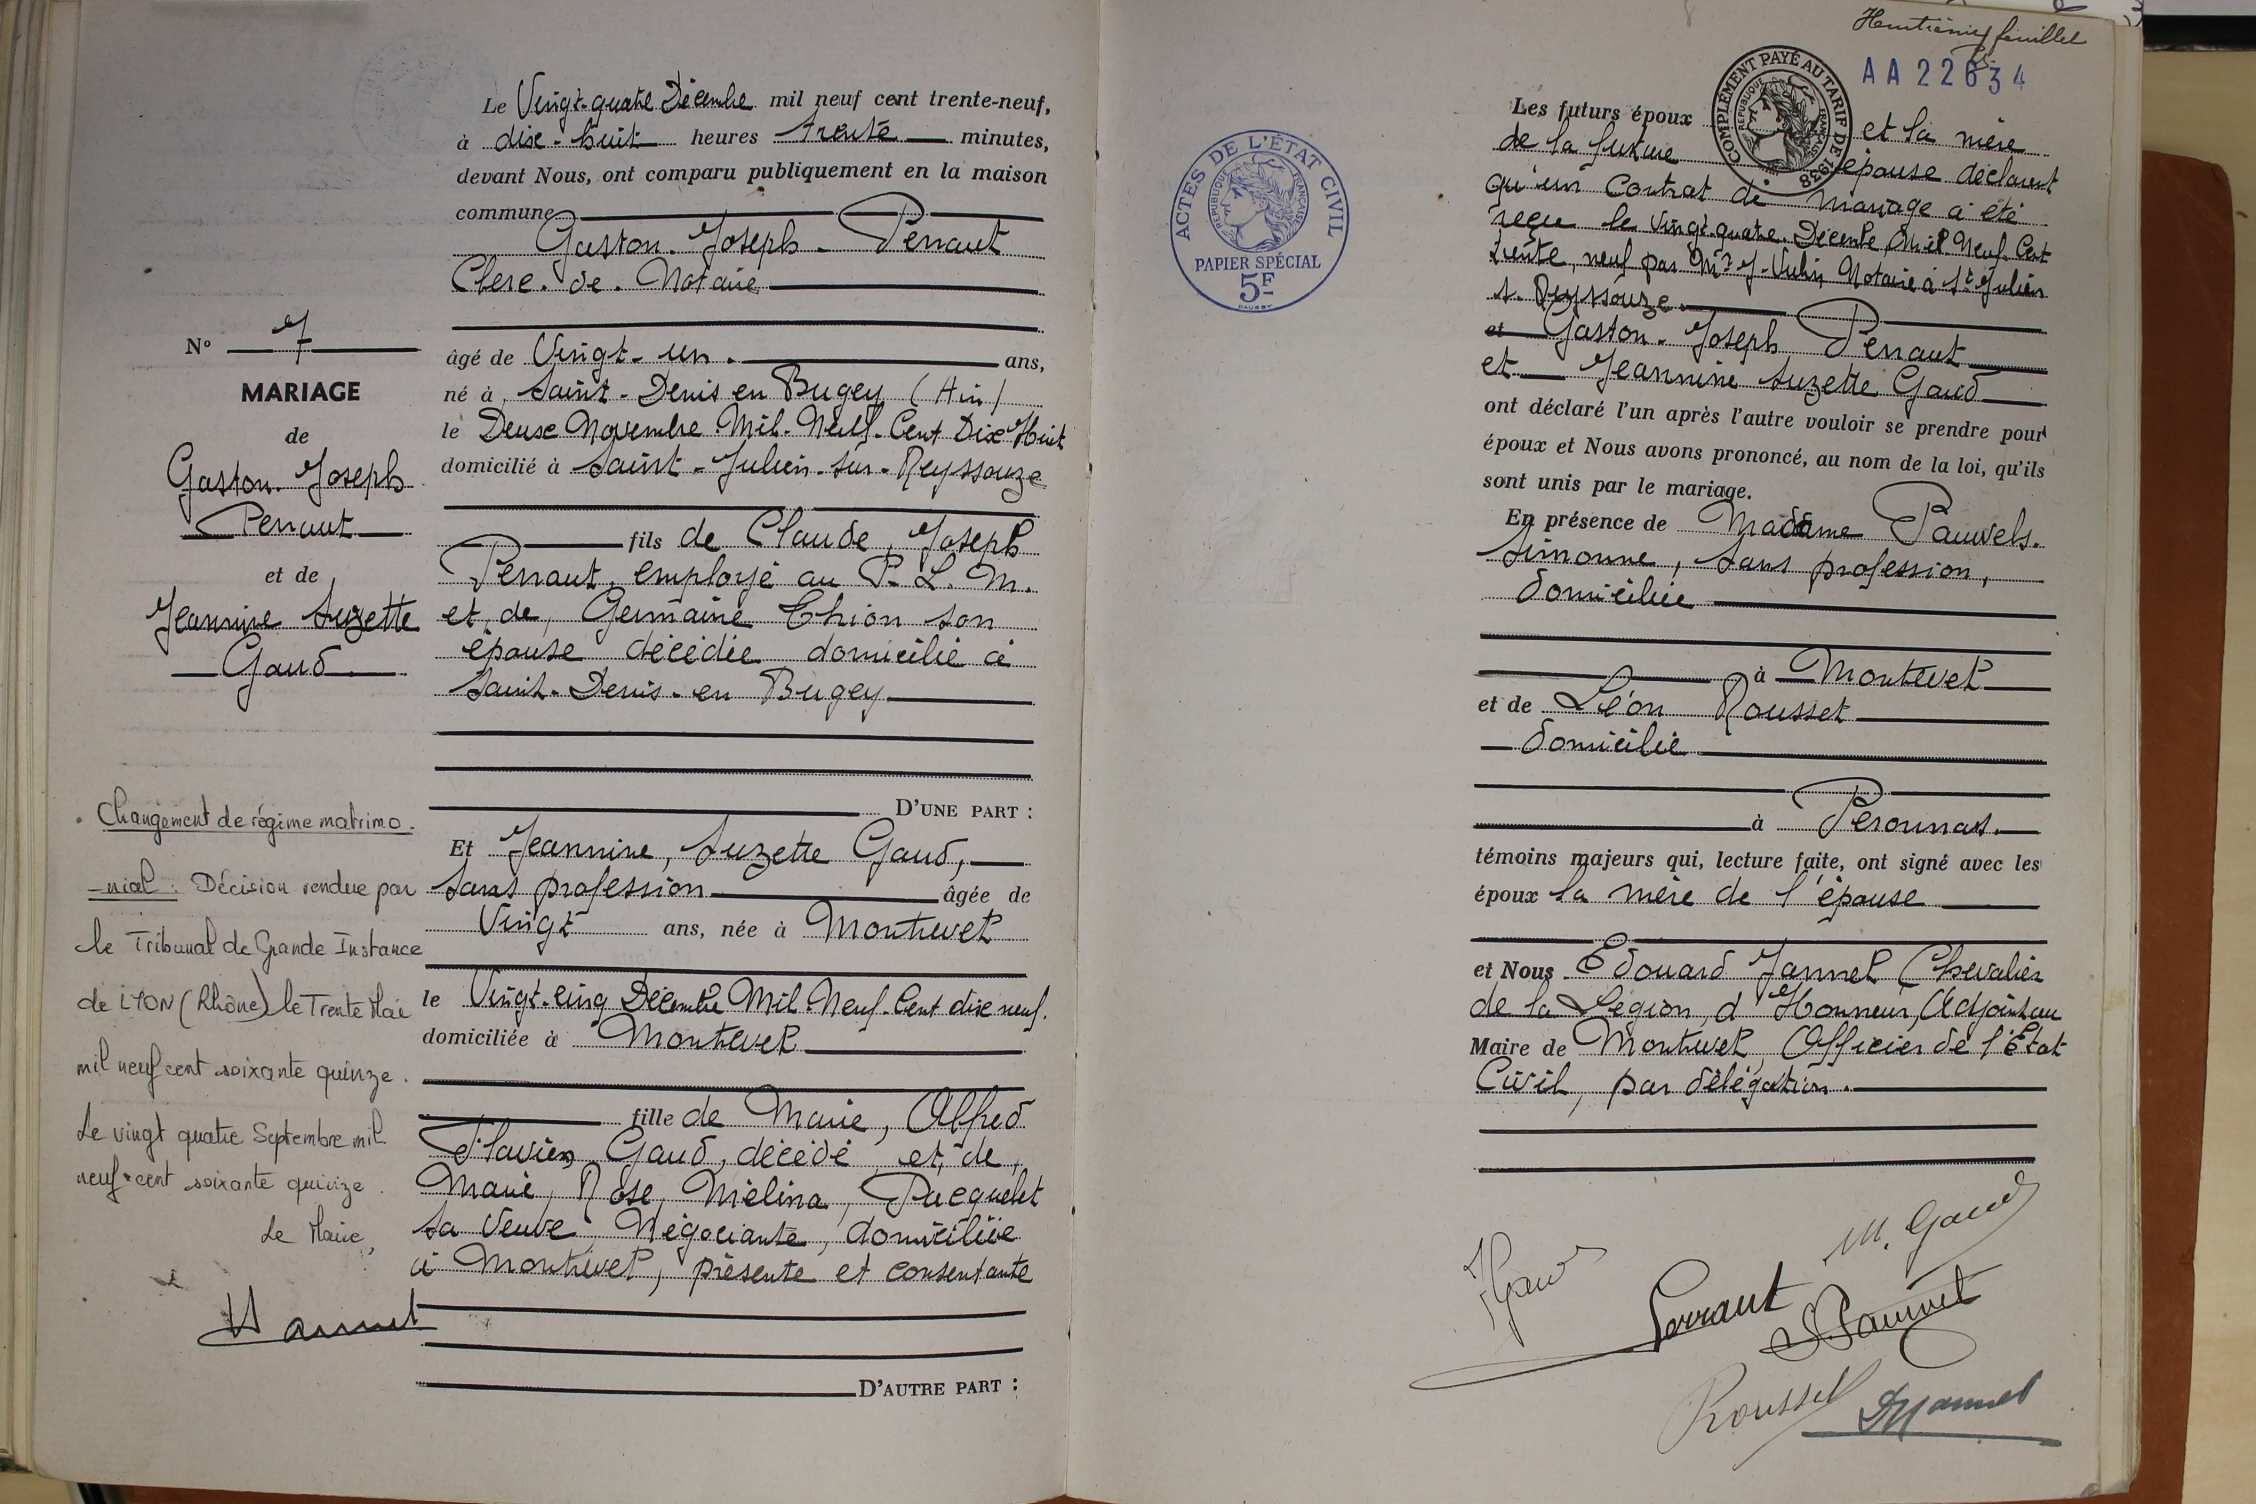 Le Vingt-quatre Décembre mil neuf cent trente-neuf,
à dix-huit heures trente minutes,
devant Nous, ont comparu publiquement en la maison
commune
Gaston Joseph Perraut
Clerc de Notaire
âgé de Vingt-un ans,
né à Saint-Denis en Bugey (Ain)
le Deux Novembre Mil-Neuf-Cent Dix Huit
domicilié à Saint-Julien-sur-Reyssouze
fils de Claude, Joseph
Perraut, employé au P. L. M.
et de, Germaine Chion son
épouse décédée domicilié à
Saint-Denis-en Bugey
D'UNE PART :
Et Jeannine, Suzette Gaud,
sans profession âgée de
Vingt ans, née à Montrevel
le Vingt-cinq Décembre Mil-Neuf-Cent dix neuf.
domiciliée à Montrevel
fille de Marie, Alfred
Flavien Gaud, décédé, et de,
Marie, Rose, Mélina, Pacquelet
sa Veuve, Négociante, domiciliée
à Montrevel, présente et consentante
D'AUTRE PART :
N° 7
MARIAGE
de
Gaston Joseph
Perraut
et de
Jeannine Suzette
Gaud
Changement de régime matrimo-
-nial : Décision rendue par
le Tribunal de Grande Instance
de LYON (Rhône) le Trente Mai
mil neuf cent soixante quinze.
Le vingt quatre Septembre mil
neuf cent soixante quinze.
Le Maire,
ACTES DE L'ÉTAT CIVIL
RÉPUBLIQUE FRANÇAISE
PAPIER SPÉCIAL
5F
Huitième feuillet
AA 22634
COMPLÉMENT PAYÉ AU TARIF DE 1938
RÉPUBLIQUE FRANÇAISE
Les futurs époux et la mère
de la future épouse déclarent
qu'un Contrat de Mariage a été
reçu le Vingt-quatre Décembre Mil Neuf Cent
trente, neuf par Me J. Notaire à St Julien
s. Reyssouze
et Gaston Joseph Perraut
et Jeannine Suzette Gaud
ont déclaré l'un après l'autre vouloir se prendre pour
époux et Nous avons prononcé, au nom de la loi, qu'ils
sont unis par le mariage.
En présence de Madame Pauwels.
Simonne, sans profession,
domiciliée
à Montrevel
et de Léon Rousset
domicilié
à Péronnas.
témoins majeurs qui, lecture faite, ont signé avec les
époux la mère de l'épouse
et Nous Edouard Jannel Chevalier
de la Légion d'Honneur, Adjoint au
Maire de Montrevel, Officier de l'État
Civil, par délégation.
M. Gaud
J Gaud
Perraut
Rousset